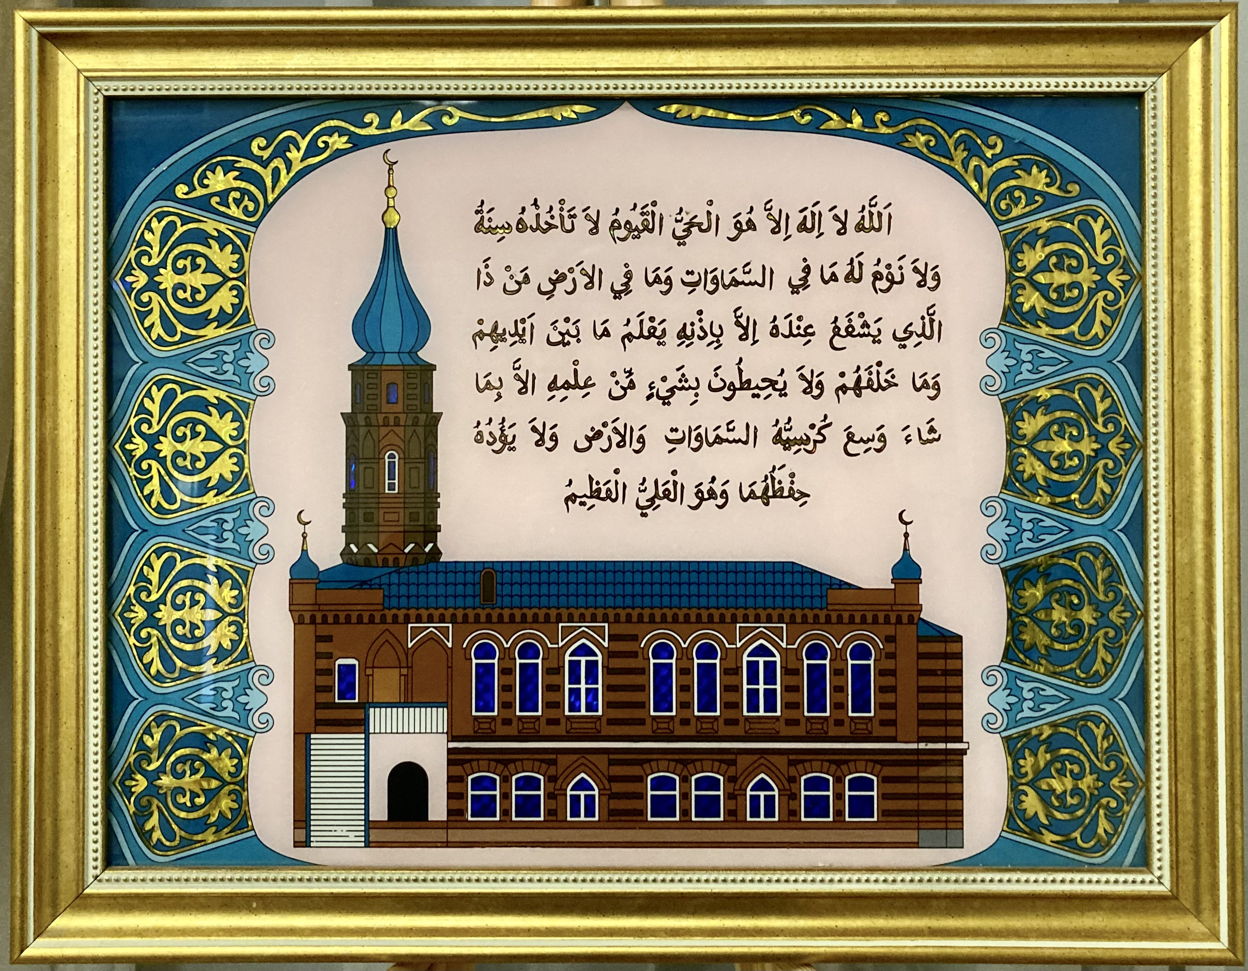 اَللَّهُ لاَ اِلَهَ اِلاَّ هُوَ الْحَيُّ الْقَيُّومُ لاَ تَأْخُذُهُ سِنَةٌ
وَلاَ نَوْمُ لَهُ مَا فِي السَّمَاوَاتِ وَمَا فِي الاَرْضِ مَنْ ذَا
الَّذِي يَشْفَعُ عِنْدَهُ اِلاَّ بِاِذْنِهِ يَعْلَمُ مَا بَيْنَ اَيْدِيهِمْ
وَمَا خَلْفَهُمْ وَلاَ يُحِيطُونَ بِشَيْءٍ مِّنْ عِلْمِهِ اِلاَّ بِمَا
شَاءَ وَسِعَ كُرْسِيُّهُ السَّمَاوَاتِ وَالاَرْضَ وَلاَ يَؤُدُهُ
حِفْظُهُمَا وَهُوَ الْعَلِيُّ الْعَظِيمُ